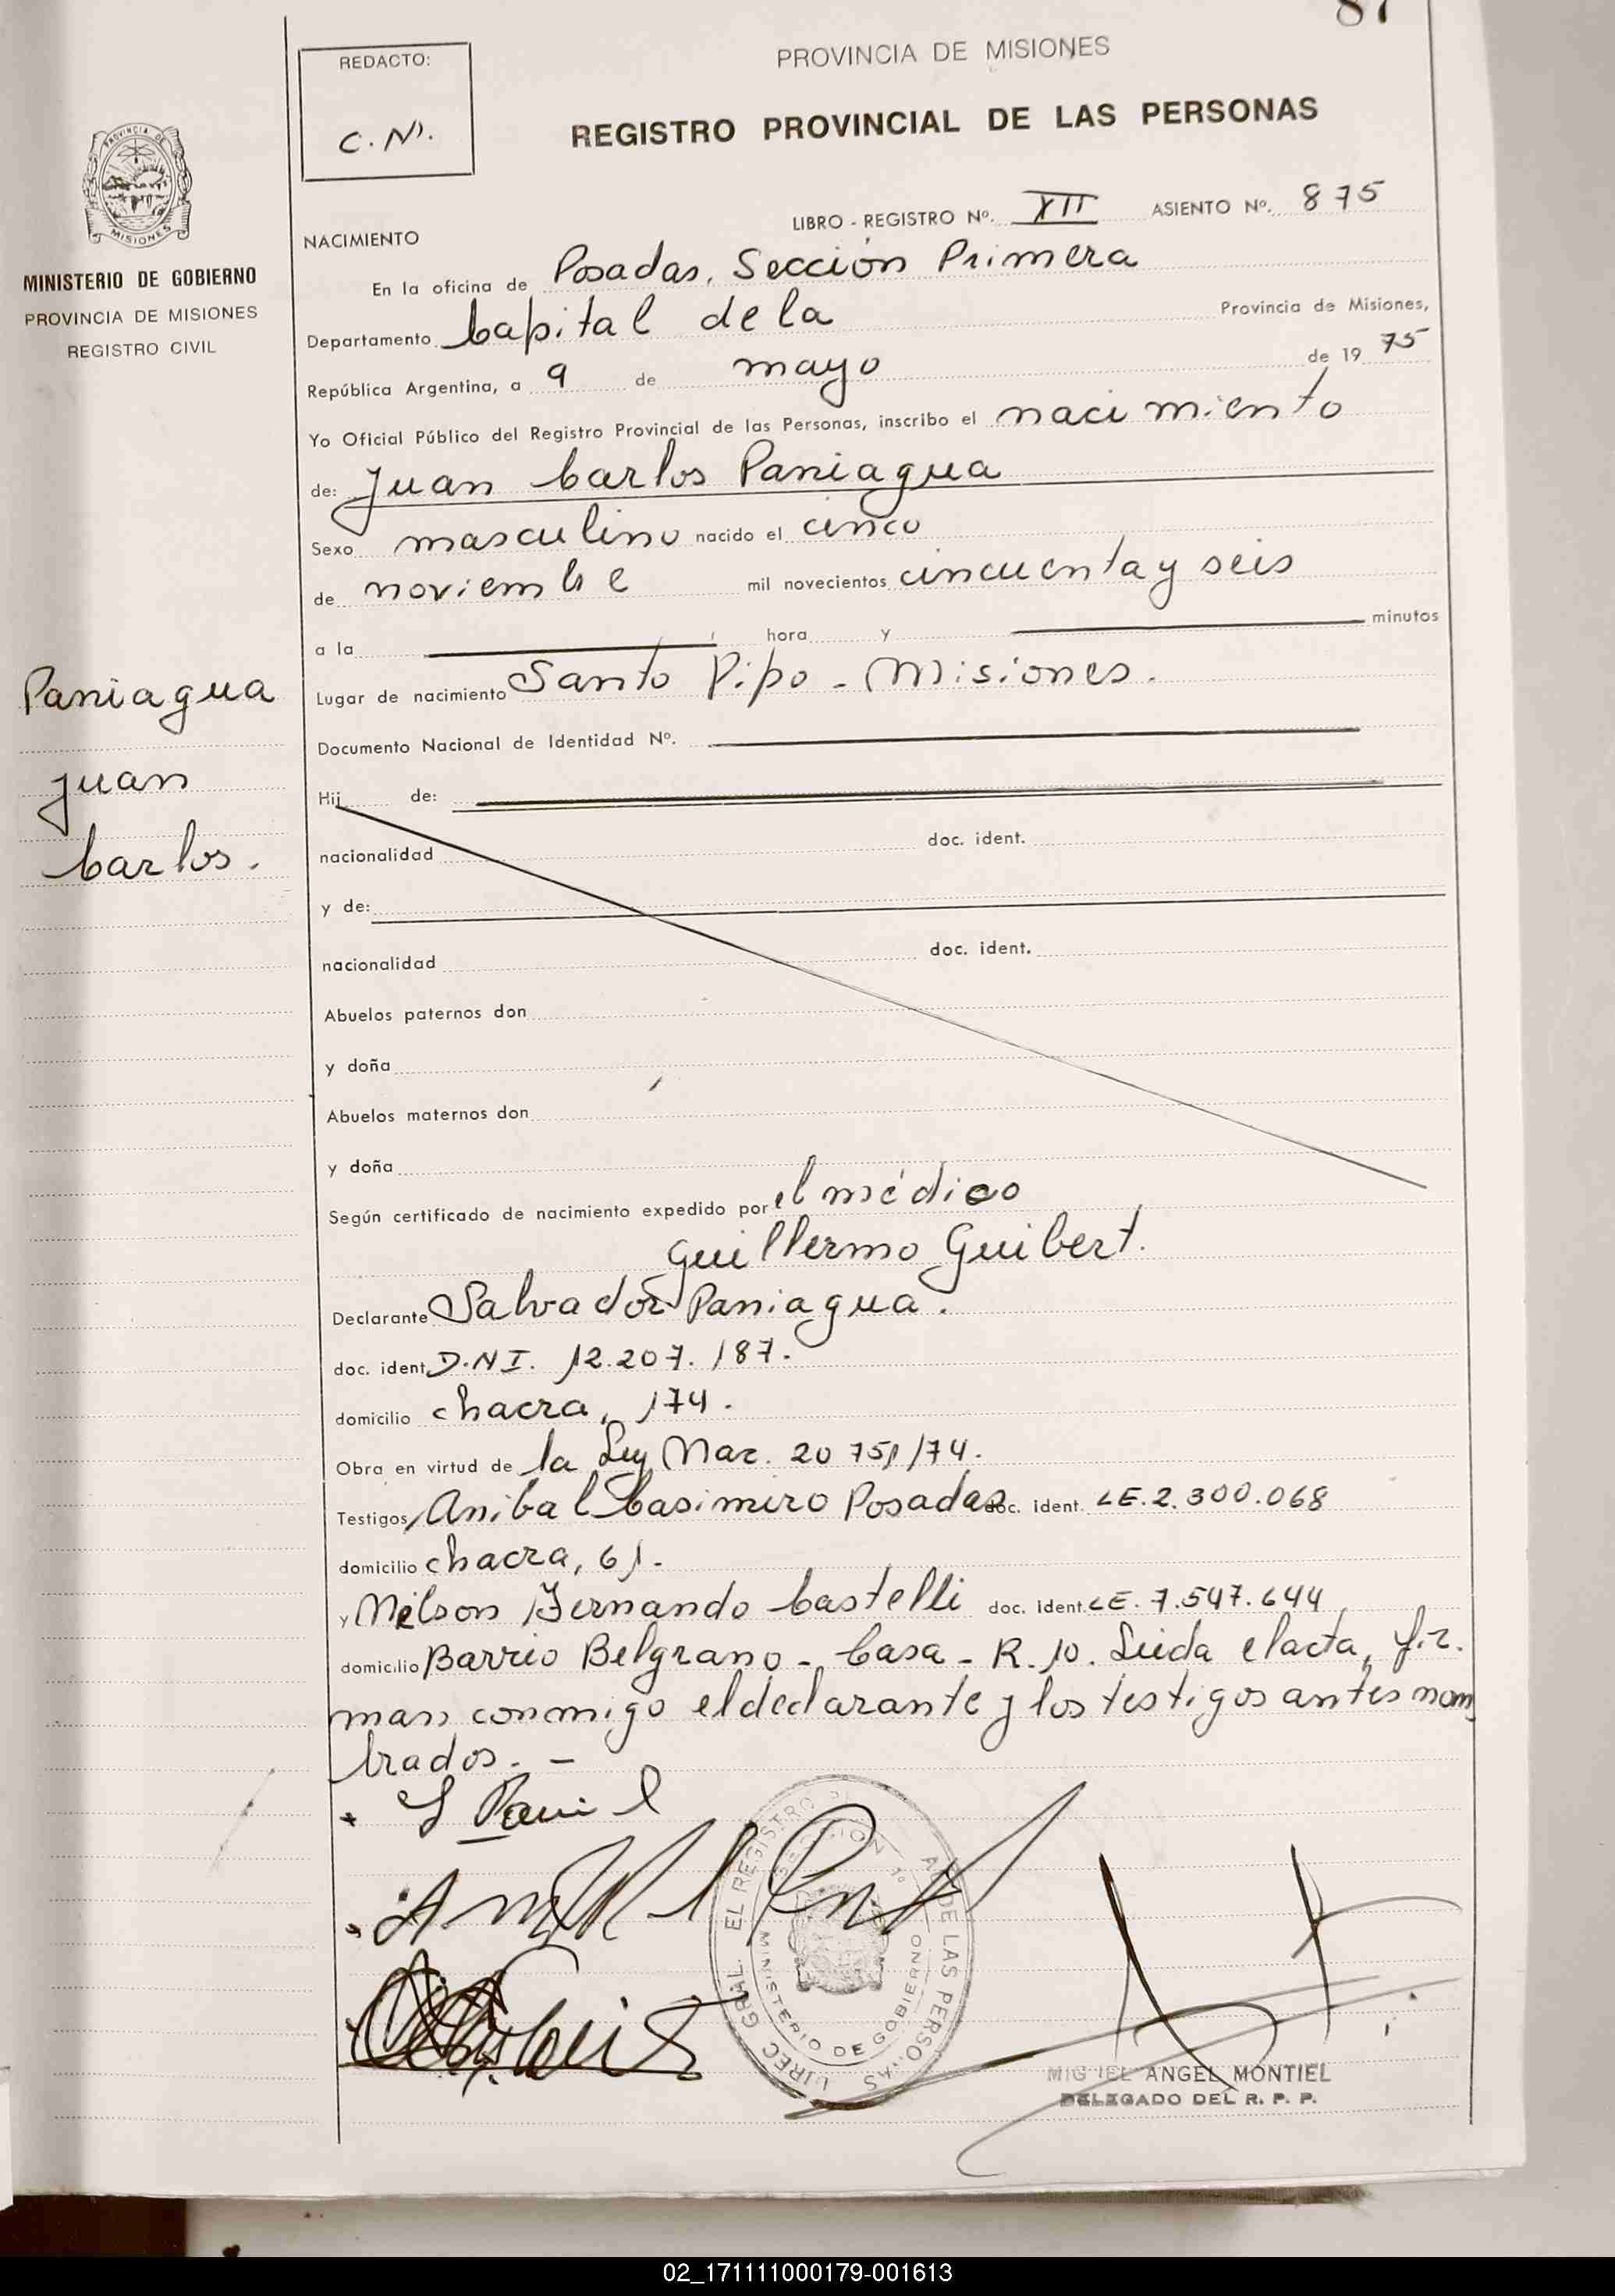 87
REDACTO:
C.N.
PROVINCIA DE MISIONES
REGISTRO PROVINCIAL DE LAS PERSONAS
PROVINCIA DE
MISIONES
MINISTERIO DE GOBIERNO
PROVINCIA DE MISIONES
REGISTRO CIVIL
LIBRO - REGISTRO Nº. XII ASIENTO Nº. 875
NACIMIENTO
En la oficina de Posadas, Sección Primera
Departamento Capital de la Provincia de Misiones,
República Argentina, a 9 de mayo de 1975
Yo Oficial Público del Registro Provincial de las Personas, inscribo el nacimiento
de: Juan Carlos Paniagua
Sexo masculino nacido el cinco
de noviembre mil novecientos cincuenta y seis
a la hora y minutos
Lugar de nacimiento Santo Pipo - Misiones.
Paniagua
Juan
Carlos.
Documento Nacional de Identidad Nº.
Hij de:
nacionalidad doc. ident.
y de:
nacionalidad doc. ident.
Abuelos paternos don
y doña
Abuelos maternos don
y doña
Según certificado de nacimiento expedido por el médico
Guillermo Guibert.
Declarante Salvador Paniagua.
doc. ident. D.N.I. 12.207.187.
domicilio chacra, 174.
Obra en virtud de la Ley Nac. 20751/74.
Testigos, Anibal Casimiro Posadas doc. ident. LE. 2.300.068
domicilio chacra, 61.
y Nelson Fernando Castelli doc. ident. LE. 7.547.644
domicilio Barrio Belgrano - Casa - R. 10. Leida el acta, fir-
man conmigo el declarante y los testigos antes nom
brados. -
MINISTERIO DE GOBIERNO
MIGUEL ANGEL MONTIEL
DELEGADO DEL R. P. P.
02_171111000179-001613